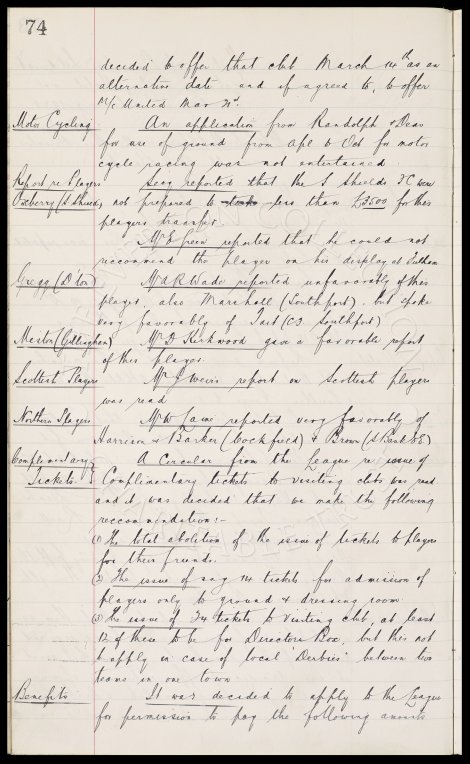 74
decided to offer that club March 14th as an
alternative date and if agreed to, to offer
M/c United Mar 21st.
Motor Cycling An application from Randolph & Dean
for use of ground from Apl to Oct for motor
cycle racing was not entertained.
Report re Players Secy reported that the S Shields FC were
Oxberry (S. Shields) not prepared to take less than £3500 for this
players transfer.
Mr E Green reported that he could not
reccommend the player on his display at Fulham
Gregg (D'ton) Mr A R Wade reported unfavorably of this
player, also Marshall (Southport), but spoke
very favorably of Tait (CF Southport)
Meston (Gillingham) Mr D Kirkwood gave a favorable report
of this player
Scottish Players Mr J Weirs report on Scottish players
was read
Northern Players Mr W Caine reported very favorably of
Harrison & Barker (Cockfield) &
A Circular from the League re issue of
Complimentary
Tickets Complimentary tickets to visiting clubs was read
and it was decided that we make the following
reccomendation:-
(1) The total abolition of the issue of tickets to players
for their friends.
(2) The issue of say 14 tickets for admission of
players only to ground & dressing room
(3) The issue of 24 tickets to visiting club, at least
12 of these to be for Directors Box, but this not
to apply in case of local 'Derbies' between two
teams in one town
Benefits It was decided to apply to the League
for permission to pay the following amounts